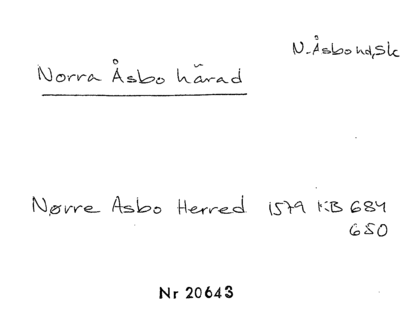 N. Åsbo hd, Sk
Norra Åsbo härad
Nørre Asbo Herred 1579 KB 684
650
Nr 20643